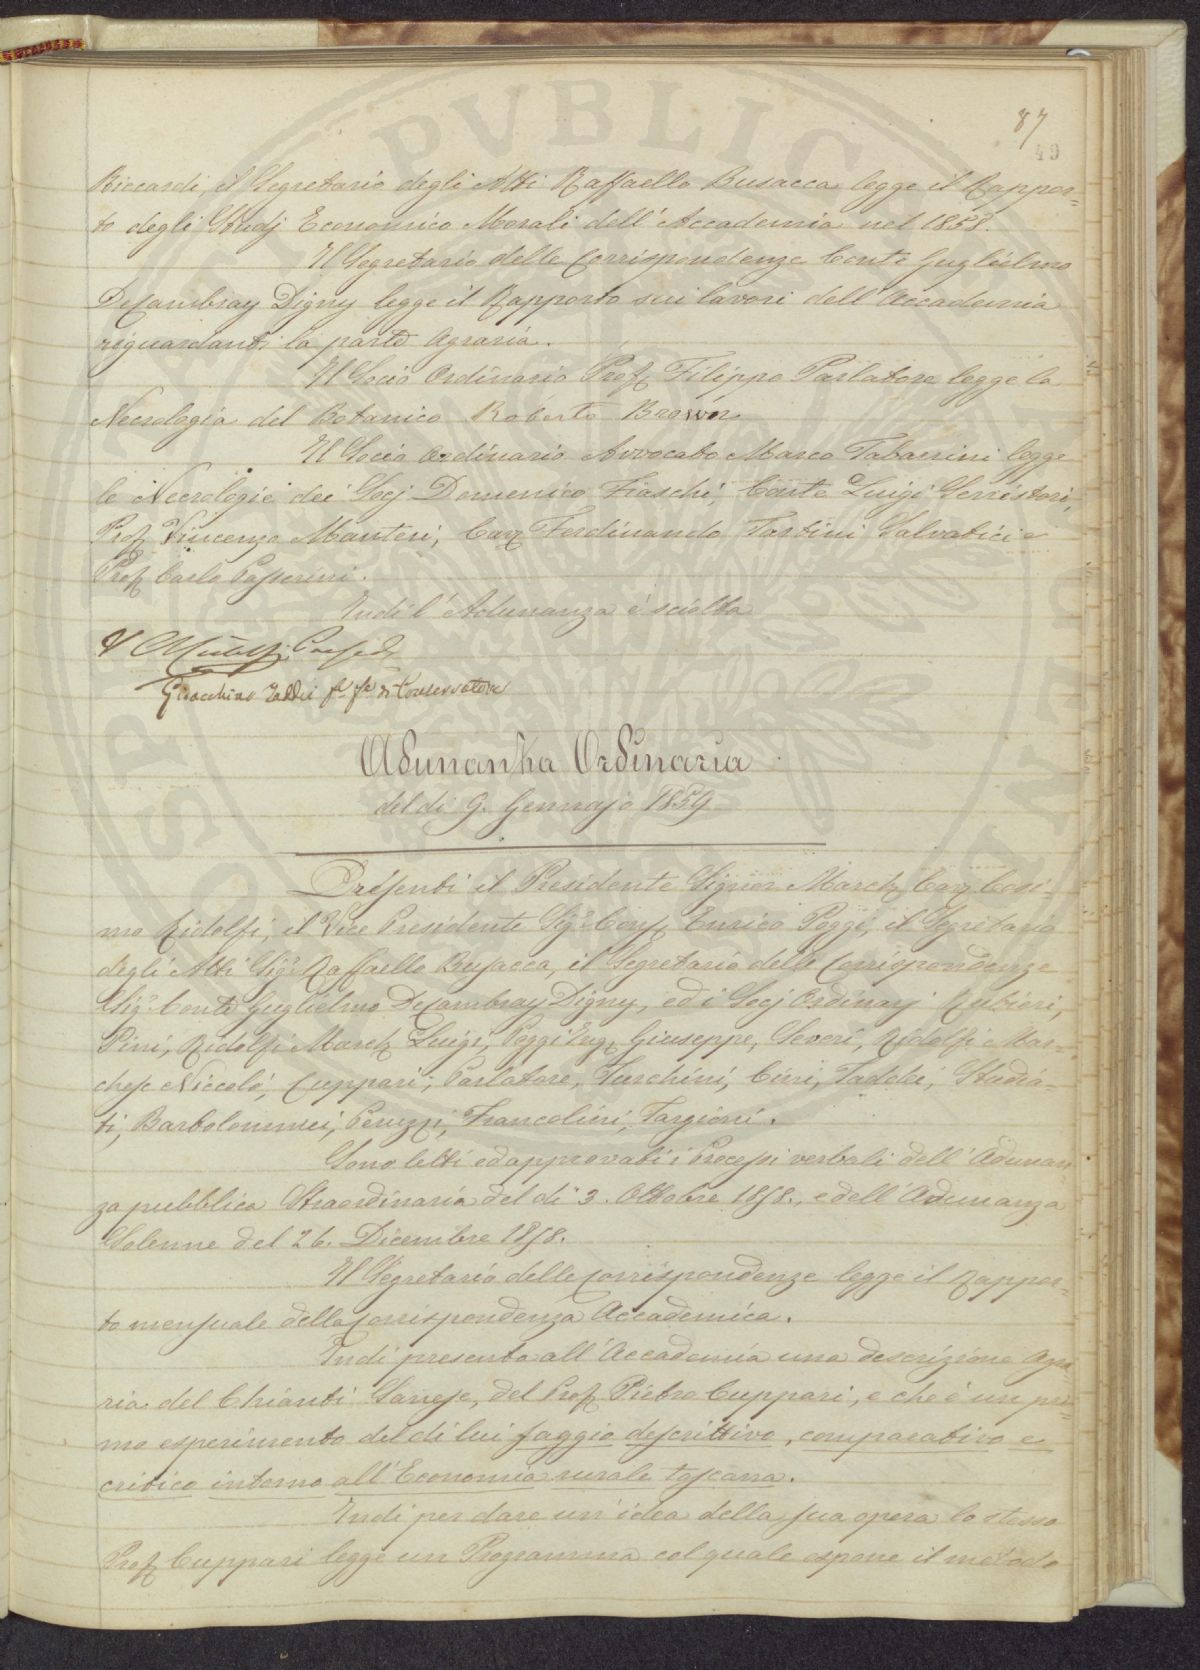 87
49
Riccardi, il Segretario degli Atti Raffaello Busacca legge il Rappor=
to degli Studj Economico Morali dell'Accademia nel 1858.
Il Segretario delle Corrispondenze Conte Guglielmo
DeCambray Digny legge il Rapporto sui lavori dell'Accademia
riguardanti la parte Agraria.
Il Socio Ordinario Prof. Filippo Parlatore legge la
Necrologia del Botanico Roberto Brown
Il Socio Ordinario Avvocato Marco Tabarrini legge
le Necrologie dei Socj Domenico Fiaschi, Conte Luigi Serristori,
Prof. Vincenzo Manteri, Cav. Ferdinando Tartini Salvatici e
Prof. Carlo Passerini.
Indi l'Adunanza è sciolta
Gioacchino Taddei ff. di Conservatore
Adunanza Ordinaria
del dì 9. Gennajo 1859
Presenti il Presidente Signor March. Cav. Cosi=
mo Ridolfi, il Vice Presidente Sig. Cons. Enrico Poggi, il Segretario
degli Atti Sig. Raffaello Busacca, il Segretario delle Corrispondenze
Sig. Conte Guglielmo DeCambray Digny, ed i Socj Ordinarj Rubieri,
Pini, Ridolfi March. Luigi, Poggi Ing. Giuseppe, Severi, Ridolfi Mar=
chese Niccolò, Cuppari, Parlatore, Turchini, Ciuri, Taddei, Studia=
ti, Bartolommei, Peruzzi, Francolini, Targioni.
Sono letti ed approvati i Processi verbali dell'Adunan
za pubblica Straordinaria del dì 3. Ottobre 1858., e dell'Adunanza
Solenne del 26. Dicembre 1858.
Il Segretario delle Corrispondenze legge il Rappor=
to mensuale della Corrispondenza Accademica.
Indi presenta all'Accademia una descrizione Agra=
ria del Chianti Sanese, del Prof. Pietro Cuppari, e che è un pri=
mo esperimento del di lui saggio descrittivo, comparativo e
critico intorno all'Economia rurale toscana.
Indi per dare un'idea della sua opera lo stesso
Prof. Cuppari legge un Programma col quale espone il metodo